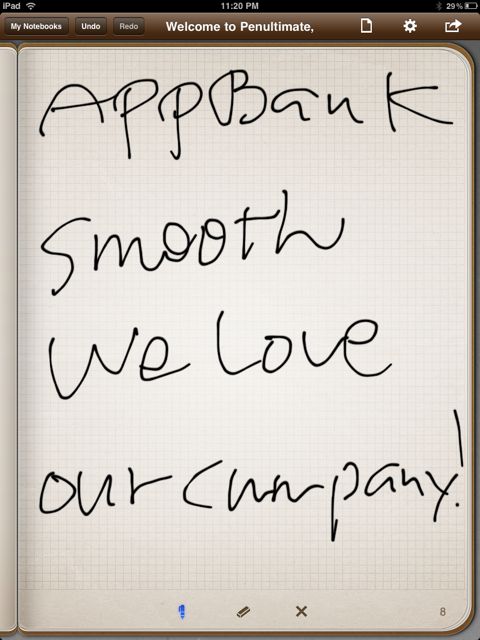 iPad 11:20 PM 29%
My Notebooks Undo Redo Welcome to Penultimate,
AppBank
Smooth
We Love
our company!
8